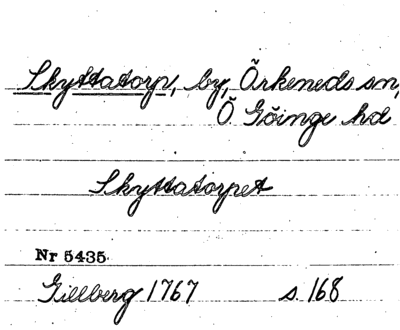 Skyttatorp, by, Örkeneds sn,
Ö Göinge hd
Skyttatorpet
Nr 5435
Gillberg 1767 s. 168